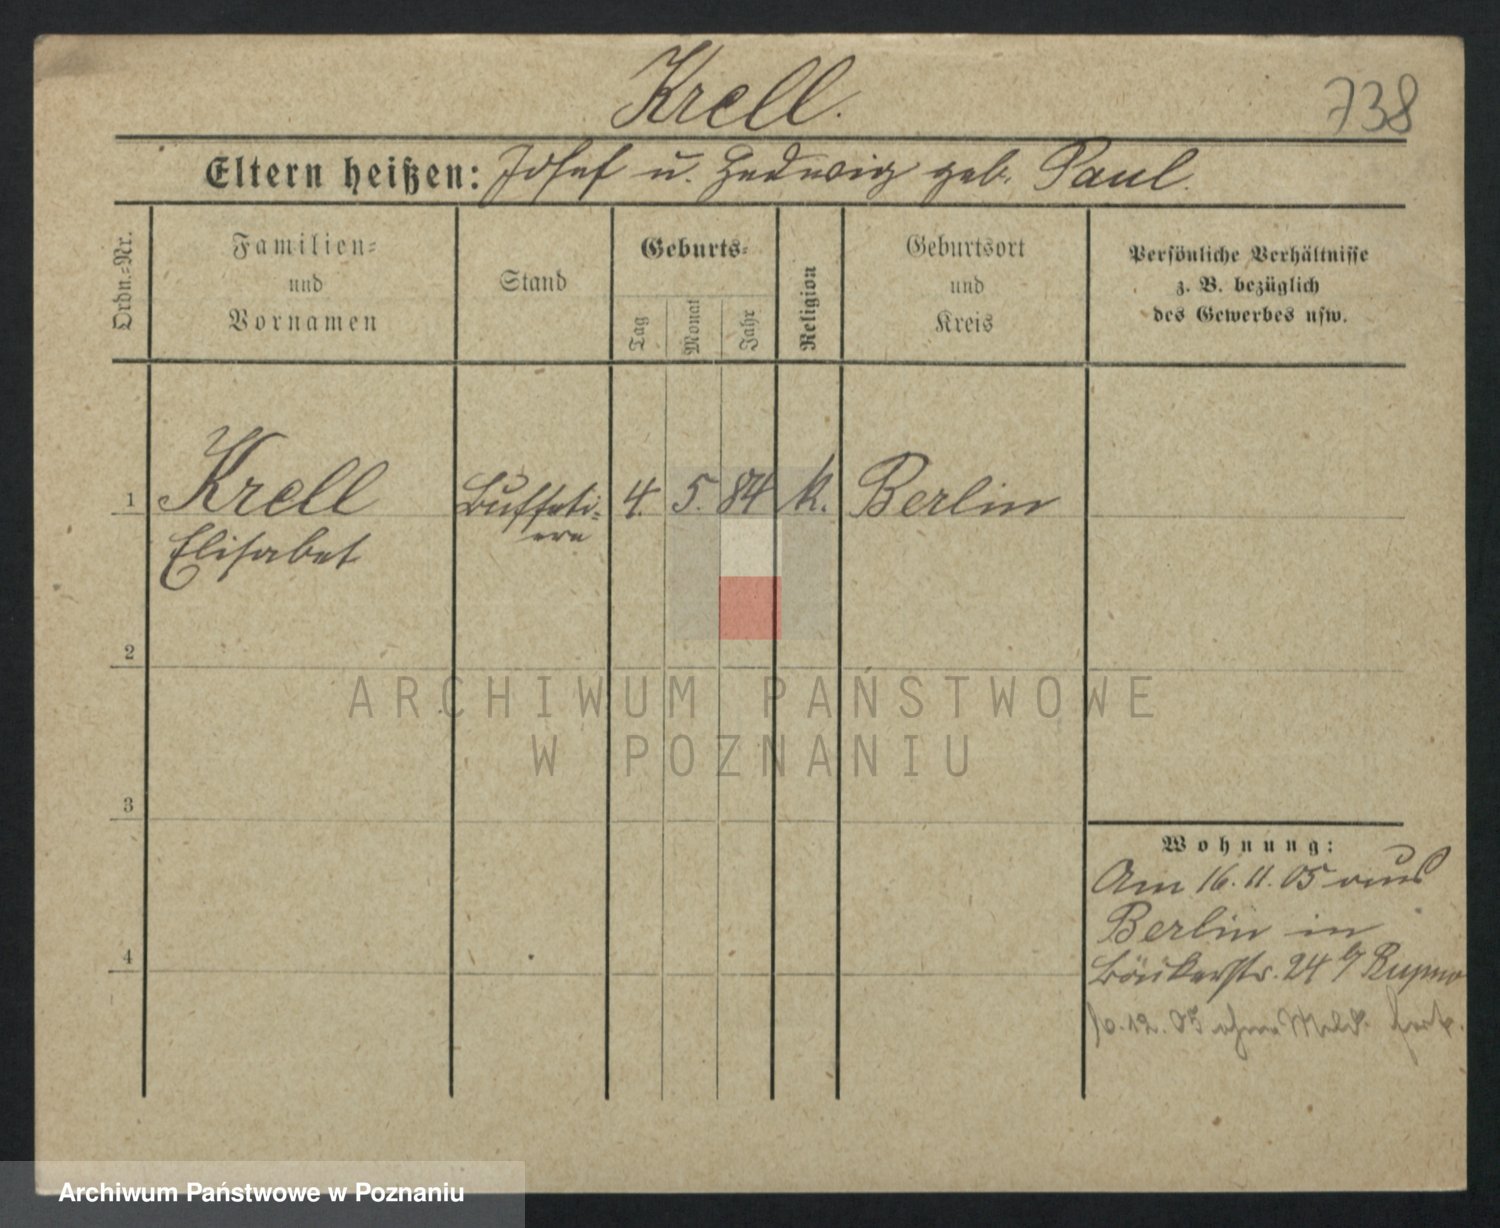 Krell.
738
Eltern heißen: Josef u. Hedwig geb. Paul.
Ordn.-Nr.
Familien-
und
Vornamen
Stand
Geburts-
Tag
Monat
Jahr
Religion
Geburtsort
und
Kreis
Persönliche Verhältnisse
z. B. bezüglich
des Gewerbes usw.
1
Krell
Elisabet
Buffeti-
ere
4. 5. 84
k.
Berlin
2
3
4
ARCHIWUM PAŃSTWOWE
W POZNANIU
Wohnung:
Am 16.11.05 aus
Berlin in
24
12.05 ohne Meld. fort.
Archiwum Państwowe w Poznaniu